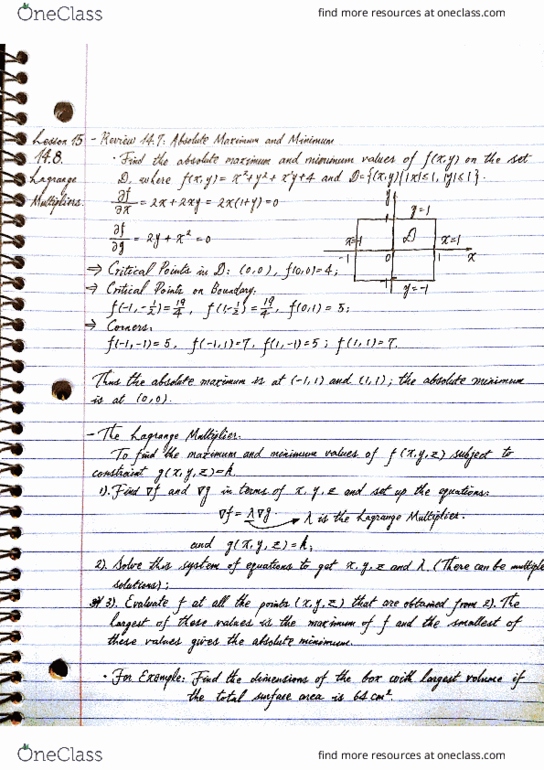 OneClass
find more resources at oneclass.com
Lesson 15 - Review 14.7: Absolute Maximum and Minimum
14.8. · Find the absolute maximum and minimum values of f(x,y) on the set
Lagrange D, where f(x,y) = x²+y²+x²y+4 and D={(x,y)||x|≤1, |y|≤1}.
Multipliers. ∂f/∂x = 2x+2xy = 2x(1+y)=0
∂f/∂y = 2y+x²=0
y
y=1
D
x=1
x=1
-1
0
1
x
y=-1
⇒ Critical Points in D: (0,0), f(0,0)=4;
⇒ Critical Points on Boundary:
f(-1,-1/2)=19/4, f(1,-1/2)=19/4, f(0,1)=5;
⇒ Corners:
f(-1,-1)=5, f(-1,1)=7, f(1,-1)=5; f(1,1)=7.
Thus the absolute maximum is at (-1,1) and (1,1); the absolute minimum
is at (0,0).
- The Lagrange Multiplier.
To find the maximum and minimum values of f(x,y,z) subject to
constraint g(x,y,z)=k.
1). Find ∇f and ∇g in terms of x,y,z and set up the equations:
∇f = λ∇g → λ is the Lagrange Multiplier.
and g(x,y,z)=k;
2). Solve this system of equations to get x,y,z and λ. (There can be multiple
solutions);
3). Evaluate f at all the points (x,y,z) that are obtained from 2). The
largest of these values is the maximum of f and the smallest of
these values gives the absolute minimum.
· For Example: Find the dimensions of the box with largest volume if
the total surface area is 64 cm².
OneClass
find more resources at oneclass.com